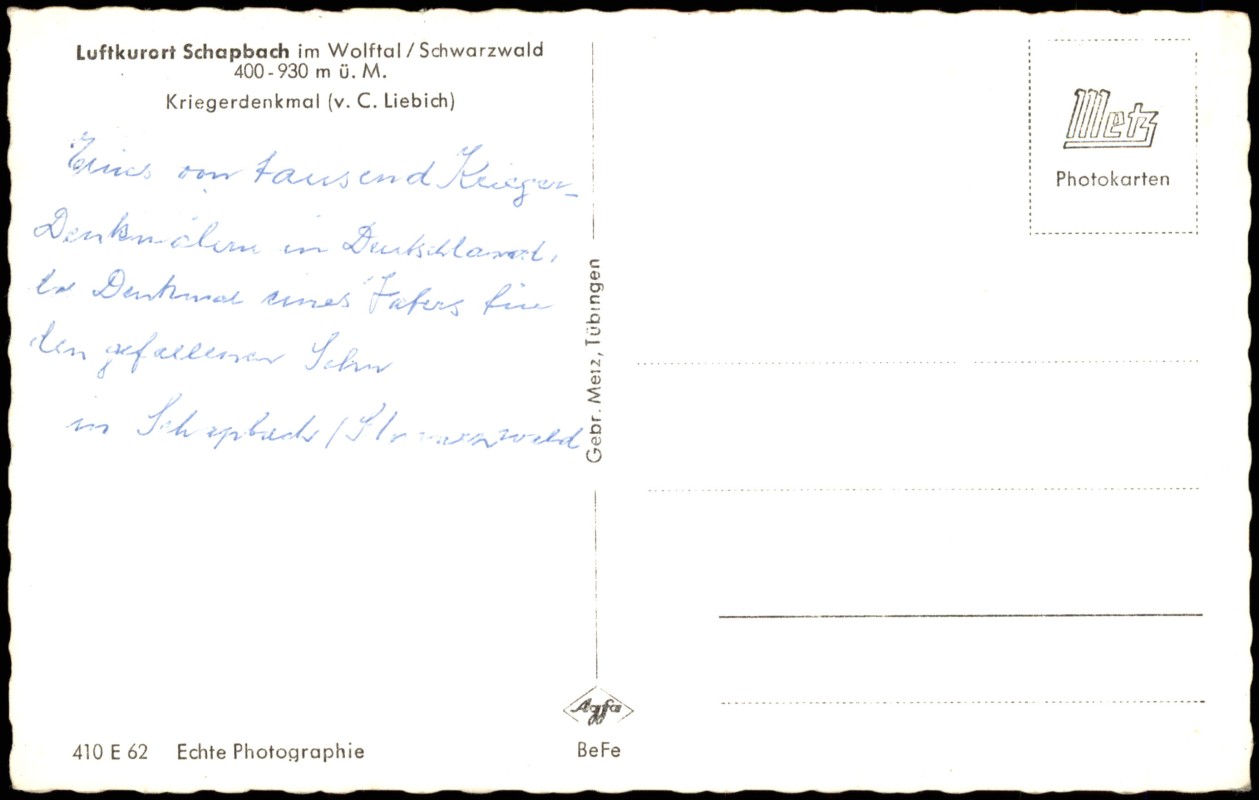 Luftkurort Schapbach im Wolftal / Schwarzwald
400-930 m ü. M.
Kriegerdenkmal (v. C. Liebich)
Eines von tausend Krieger-
Denkmälern in Deutschland,
Denkmal eines Vaters für
den gefallenen Sohn
in Schapbach / Schwarzwald
Metz
Photokarten
Gebr. Metz, Tübingen
Agfa
BeFe
410 E 62 Echte Photographie